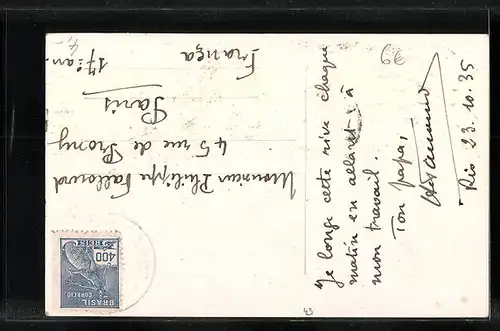 Je longe cette rive chaque
matin en allant à
mon travail.
Ton papa,
Rio 23.10.35
Monsieur Philippe
45 rue de Prony
Paris
17è arr.
França
BRASIL
CORREIO
400
REIS